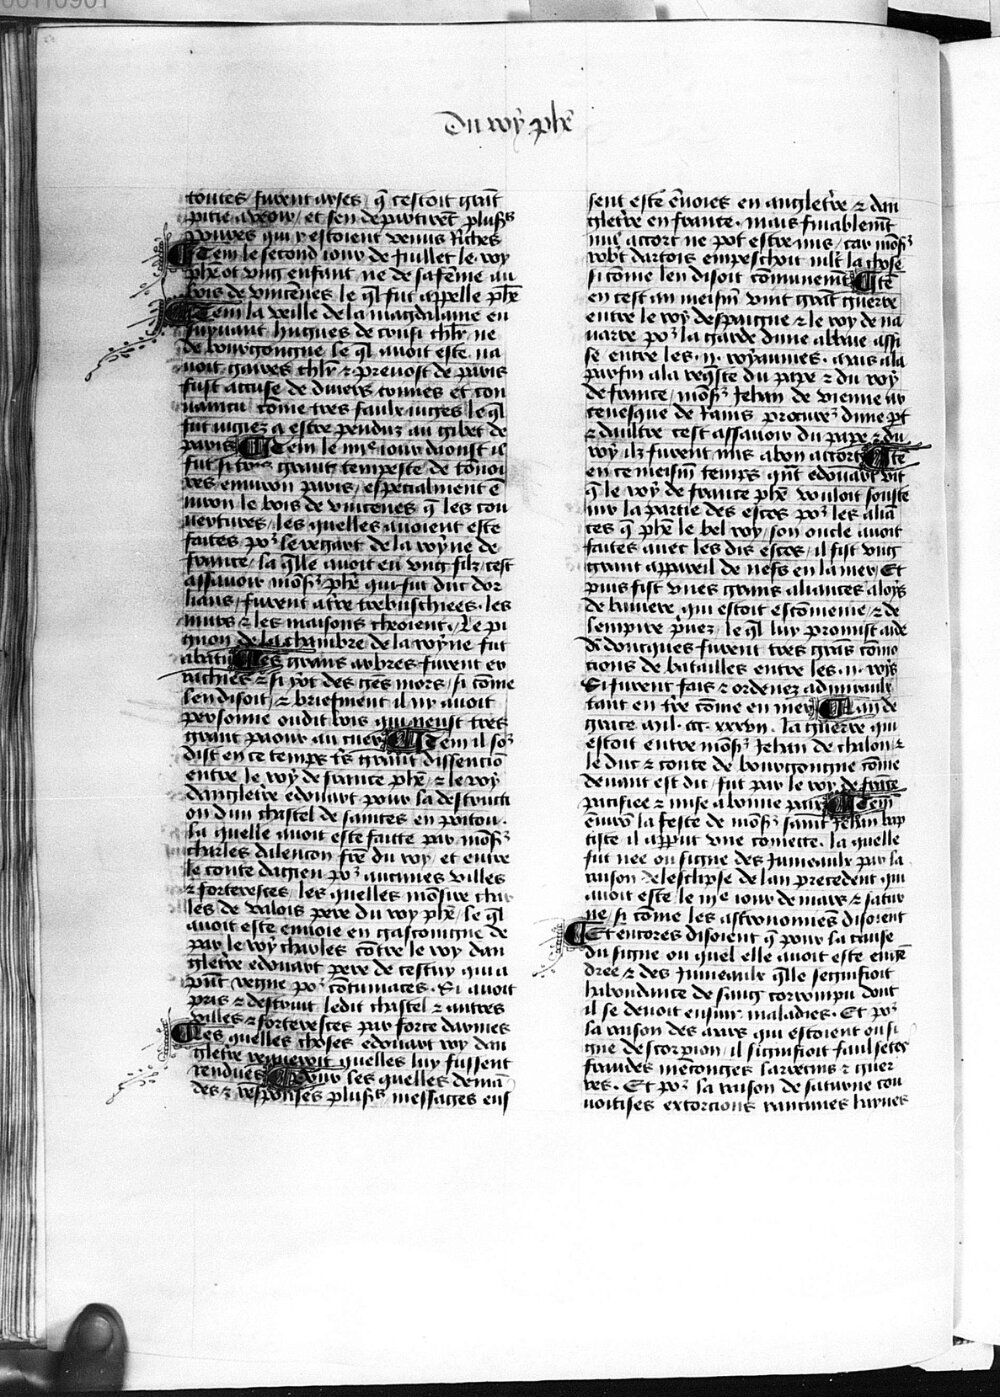 Du roy phe
toutes furent arses q̃ cestoit grãt
pitie a veoir / et sen departirẽt plusrs
poures qui y estoient venus Riches
Item le second iour de Juillet le roy
phe ot vng enfant ne de sa fẽme au
bois de vincẽnes le ql̃ fut appelle phe
Item la veille de la magdalaine en
suyuant hugues de crusi chlr̃ ne
de bourgongne le ql̃ auoit este na
gaires chlr̃ & preuost de paris
fust accuse de diuers crimes et con
uaincu cõme tres faulx iuges le ql̃
fut iugiez a estre penduz au gibet de
paris Item le iiie iour daoust il
fut si tres grant tempeste de tonoi
res enuiron paris / especialment ẽ
uiron le bois de vincẽnes q̃ les cou
uertures / les quelles auoient este
faites por le regart de la royne de
france / la qlle auoit eu vng filz / cest
assauoir monsr phe qui fut duc dor
lians / furent a tr̃e trebuschiees. les
murs & les maisons cheoient. Le pi
gnon de la chambre de la royne fut
abatu Les grans arbres furent er
rachies & si y ot des gẽs mors / si cõme
len disoit / & briefment il ny auoit
personne ou dit bois qui neust tres
grant paour au cuer Item il sor
dist en ce temps tr̃s grant dissenciõ
entre le roy de france phe / & le roy
dangletr̃e edouart pour la destructi
on dun chastel de saintes en poitou.
La quelle auoit este faitte par monsr
charles dalencon fr̃e du roy / et entre
le conte dagien por aucunes villes
& forteresces / les quelles monsire char
les de valois pere du roy phe / le ql̃
auoit este enuoie en gascongne de
par le roy charles cõtre le roy dan
gletr̃e edouart pere de cestuy qui a
pñt regne por cõtumaces. Si auoit
pris & destruit ledit chastel & autres
villes & forteresces par force darmes
Les quelles choses edouart roy dan
gletr̃e requeroit quelles luy fussent
rendues Pour les quelles demã
des & responses plusrs messages eus
sent este ẽuoies en angletr̃e & dan
gletr̃e en france. mais finablemẽt
nul accort ne pot estre mis / car monsr
robt dartois empeschoit nult la chose
si cõme len disoit cõmunemẽt Itẽ
en cest an meism̃ vint grãt guerre
entre le roy despaigne & le roy de na
uarre por la garde dune abbaie assi
se entre les .ii. royaumes. mais a la
parfin a la req̃ste du pape & du roy
de france / monsr Jehan de vienne ar
ceuesque de rains procurer dune pt
& daultre cest assauoir du pape & du
roy ilz furent mis a bon accort Itẽ
en ce meism̃ temps qñt edouart vit
q̃ le roy de france phe vouloit souste
nir la partie des escos por les aliã
ces q̃ phe le bel roy / son oncle auoit
faites auec les dis escos / il fist vng
grant appareil de nefs en la mer / Et
puis fist vnes grans aliances a loys
de bauiere qui estoit escõmenie / & de
lempire priuez / le ql̃ luy promist aide
Et doncques furent tres grãs cõmo
cions de batailles entre les .ii. roys
Si furent fais & ordenez admiraulx
tant en tr̃e cõme en mer Lan de
grace mil. ccc. xxxvii. la guerre qui
estoit entre monsr Jehan de chalon &
le duc & conte de bourgongne cõme
deuant est dit / fut par le roy de frãce
pacifiee & mise a bonne paix Item
ẽuirõ la feste de monsr saint Jehan bap
tiste il apparut vne comette. la quelle
fut nee ou signe des Jumeaulx par la
raison de lesclipse de lan precedent qui
auoit este le iiie iour de mars & satur
ne / si cõme les astronomiẽs disoient
Et encores disoient q̃ pour la cause
du signe ou quel elle auoit este engẽ
dree & des Jumeaulx q̃lle segnifioit
habondance de sang corrompu dont
il se deuoit ensuir maladies. Et por
la raison des ars qui estoient ou si
gne descorpion / il signifioit faulsetes
fraudes mẽconges larrecins & guer
res. Et por la raison de saturne con
uoitises extorcions rancunes haynes